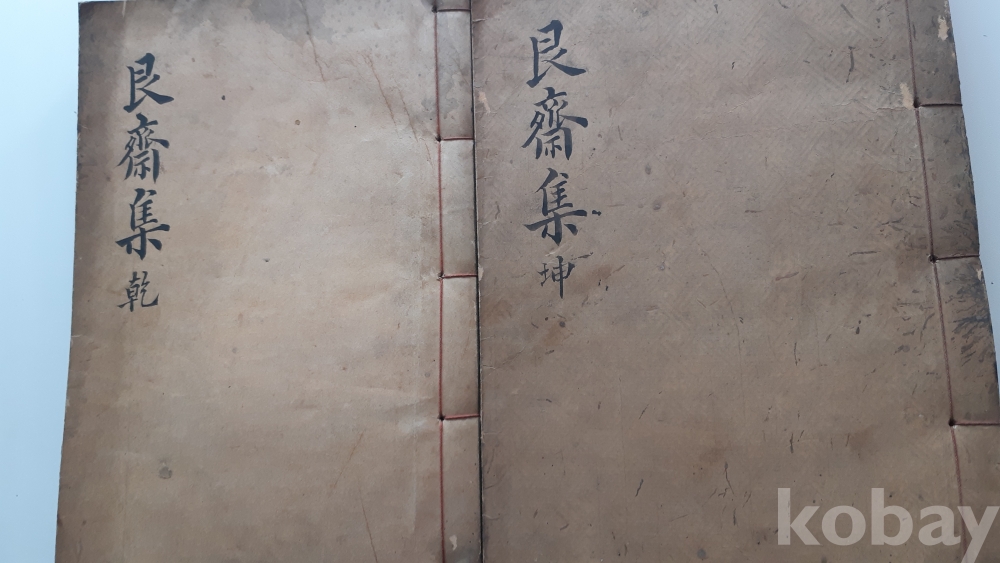 艮齋集 乾
艮齋集 坤
kobay